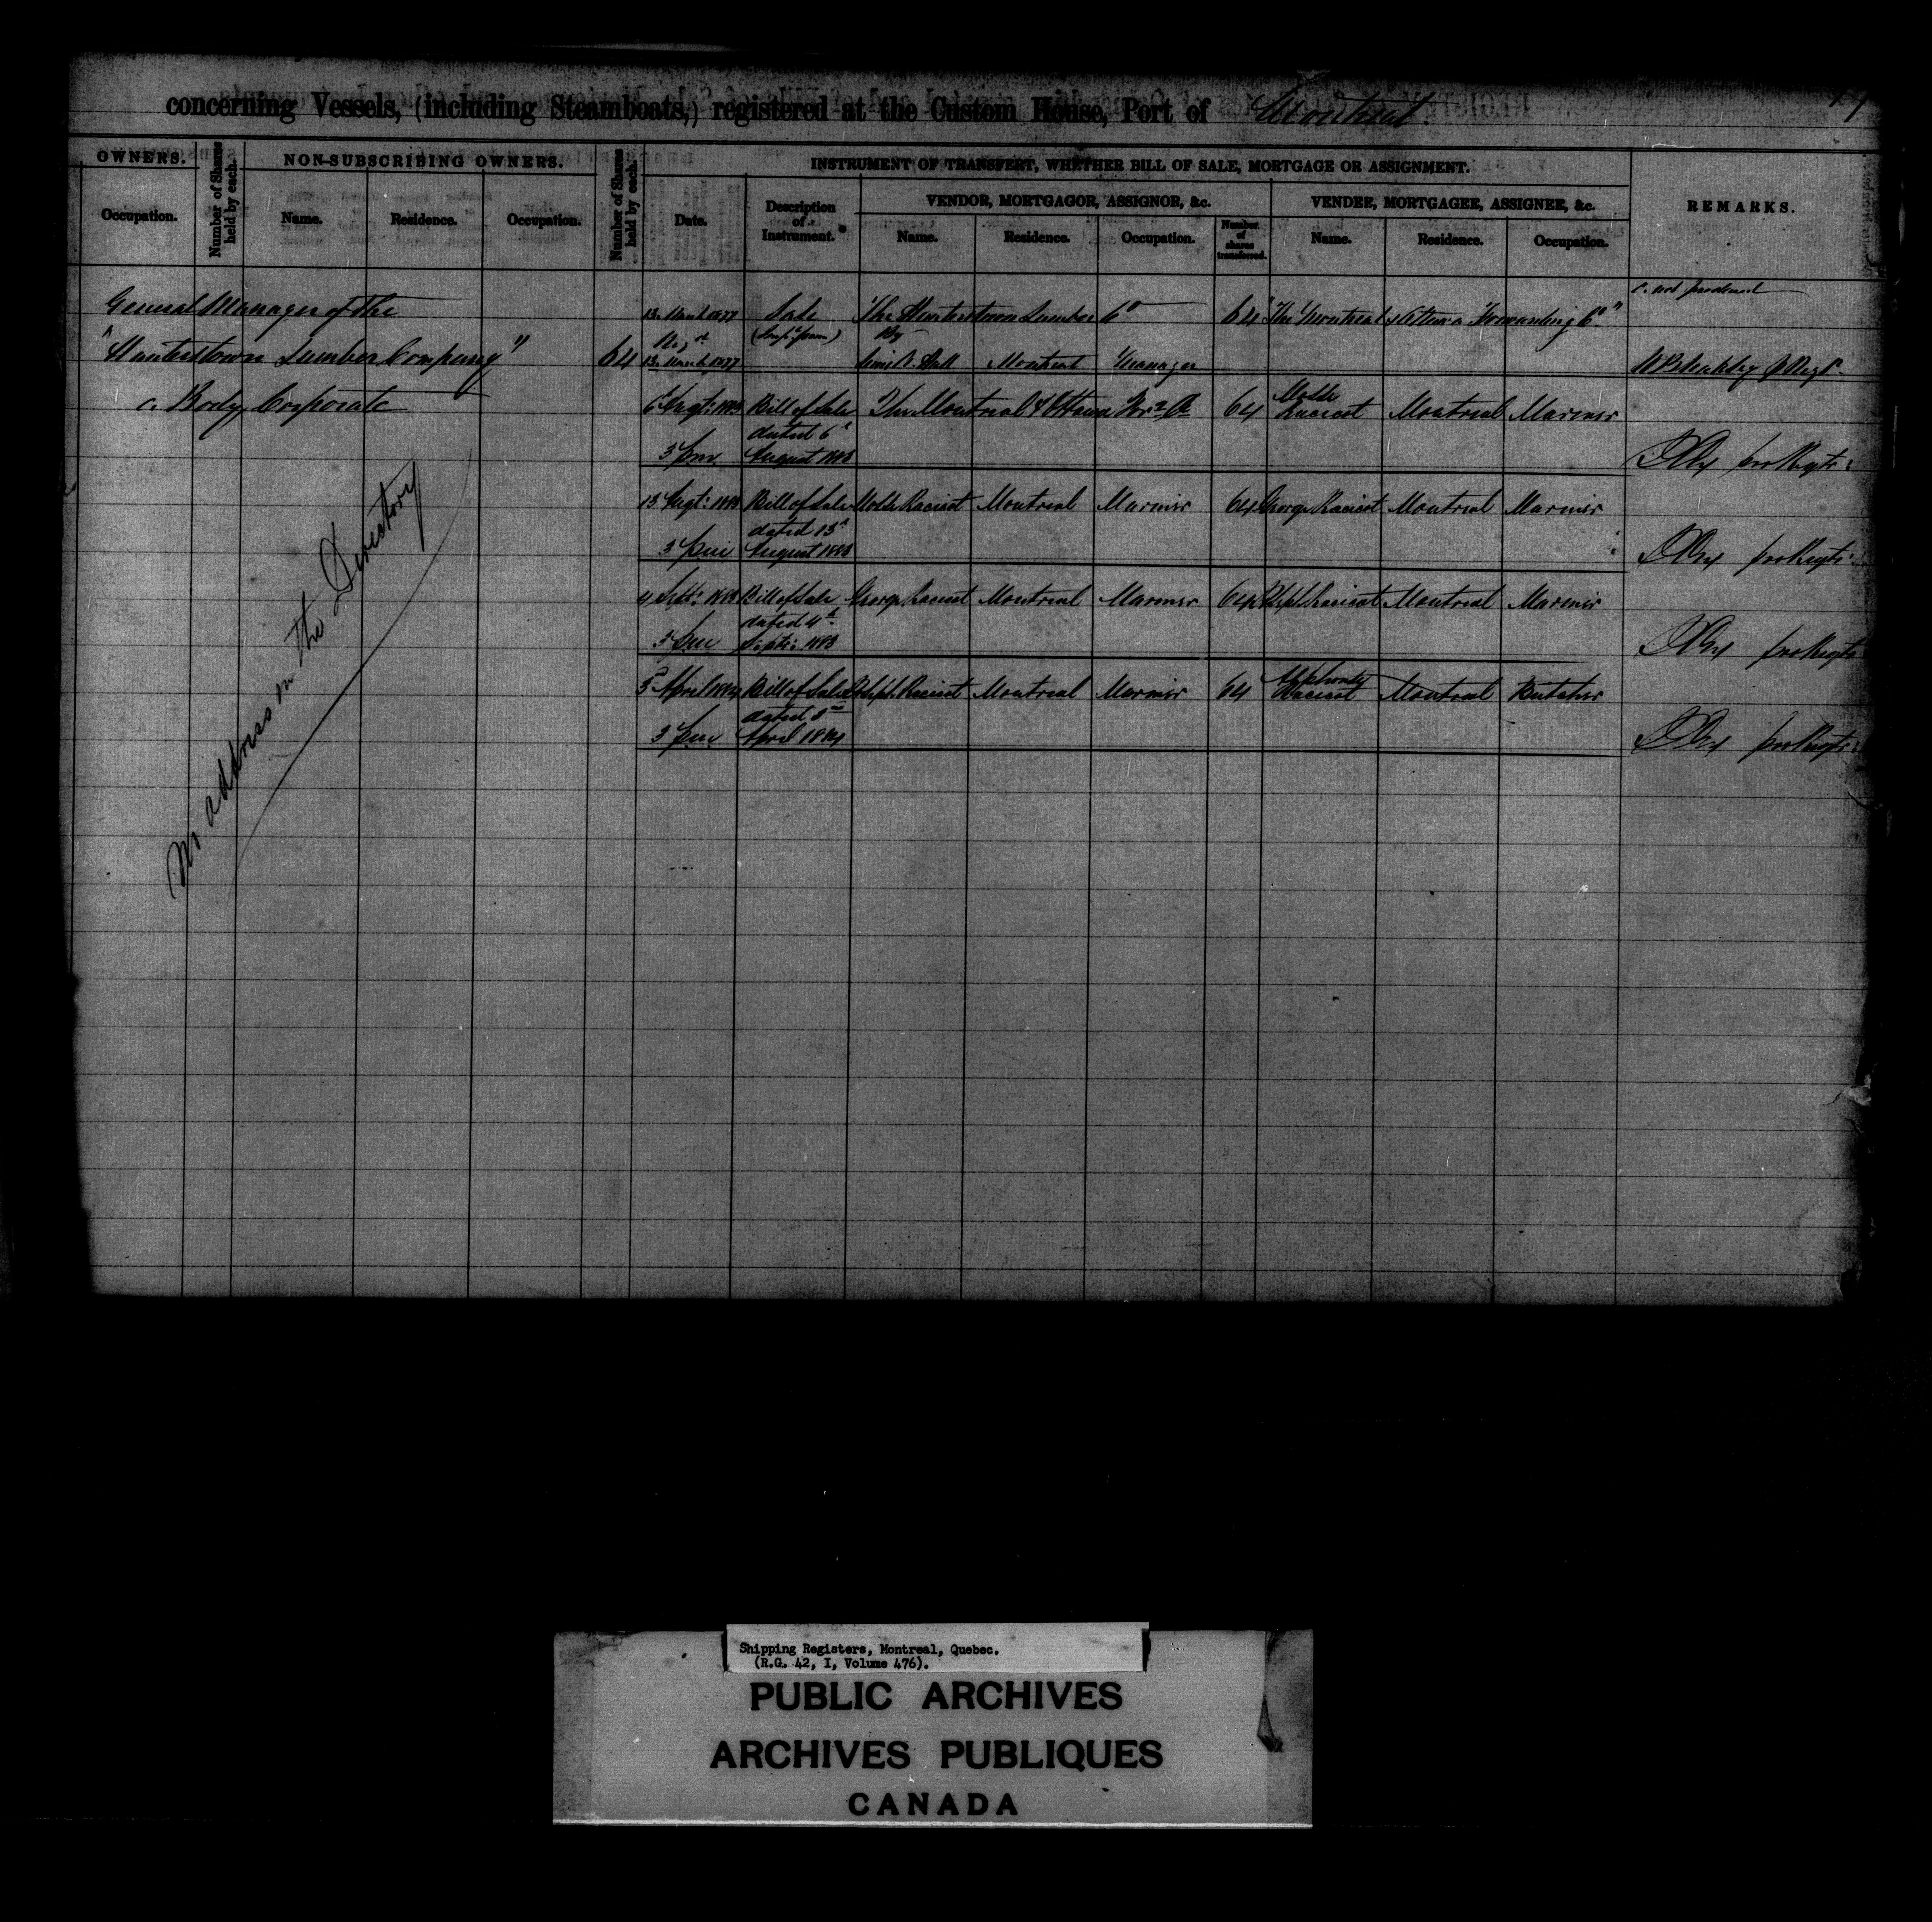 concerning Vessels, (including Steamboats,) registered at the Custom House, Port of Montreal.
OWNERS.
Number of Shares held by each.
NON-SUBSCRIBING OWNERS.
Number of Shares held by each.
INSTRUMENT OF TRANSFERT, WHETHER BILL OF SALE, MORTGAGE OR ASSIGNMENT.
REMARKS.
VENDOR, MORTGAGOR, ASSIGNOR, &c.
VENDEE, MORTGAGEE, ASSIGNEE, &c.
Occupation. Name. Residence. Occupation. Date. Description of Instrument. Name. Residence. Occupation. Number of shares transferred. Name. Residence. Occupation.
General Manager of the 13 March 1877 Sale The Hunterstown Lumber Co 64 "The Montreal & Ottawa Forwarding Co"
"Hunterstown Lumber Company" 64 13 March 1877 By Hall Montreal Manager
a Body Corporate 6 Augt: 1883 Bill of Sale The Montreal & Ottawa 64 Racicot Montreal Mariner
dated 6
3 pm August 1883
13 Augt: 1883 Bill of Sale Racicot Montreal Mariner 64 George Racicot Montreal Mariner
dated 13
3 pm August 1883
4 Septr: 1883 Bill of Sale George Racicot Montreal Mariner 64 Racicot Montreal Mariner
dated 4th
3 pm Septr: 1883
3 April 1884 Bill of Sale Racicot Montreal Mariner 64 Alphonse Racicot Montreal Butcher
dated 3
3 pm April 1884
No address in the Directory
Shipping Registers, Montreal, Quebec.
(R.G. 42, I, Volume 476).
PUBLIC ARCHIVES
ARCHIVES PUBLIQUES
CANADA